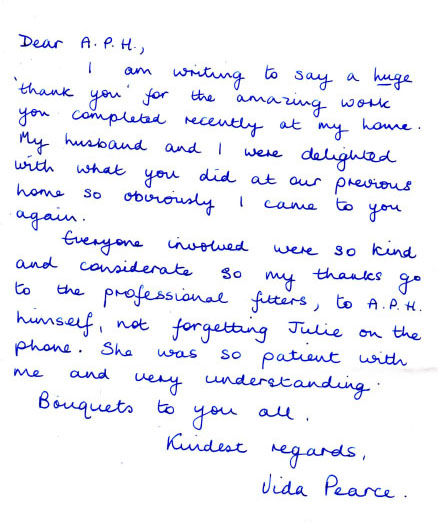 Dear A.P.H.,
I am writing to say a huge
'thank you' for the amazing work
you completed recently at my home.
My husband and I were delighted
with what you did at our previous
home so obviously I came to you
again.
Everyone involved were so kind
and considerate so my thanks go
to the professional fitters, to A.P.H.
himself, not forgetting Julie on the
phone. She was so patient with
me and very understanding.
Bouquets to you all.
Kindest regards,
Vida Pearce.